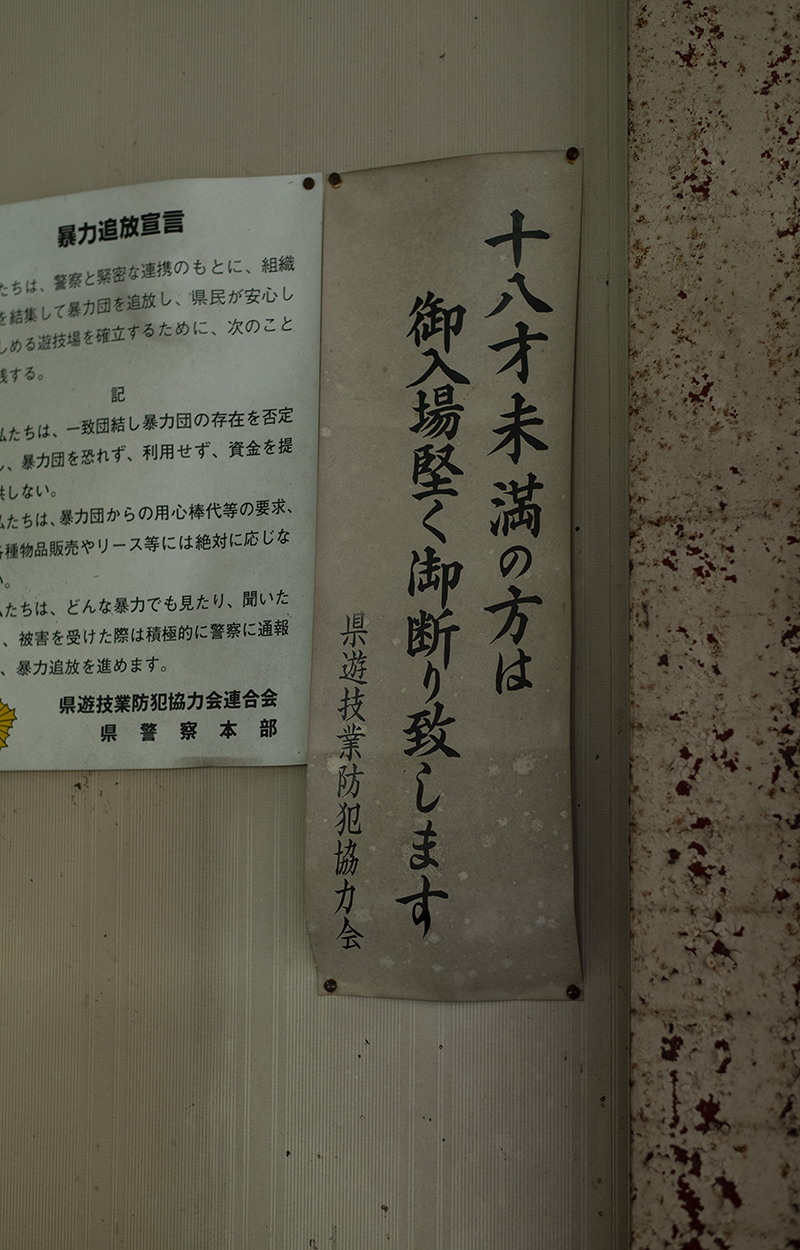 暴力追放宣言
たちは、警察と緊密な連携のもとに、組織
を結集して暴力団を追放し、県民が安心し
しめる遊技場を確立するために、次のこと
践する。
記
私たちは、一致団結し暴力団の存在を否定
し、暴力団を恐れず、利用せず、資金を提
供しない。
私たちは、暴力団からの用心棒代等の要求、
各種物品販売やリース等には絶対に応じな
い。
たちは、どんな暴力でも見たり、聞いた
、被害を受けた際は積極的に警察に通報
、暴力追放を進めます。
県遊技業防犯協力会連合会
県警察本部
十八才未満の方は
御入場堅く御断り致します
県遊技業防犯協力会